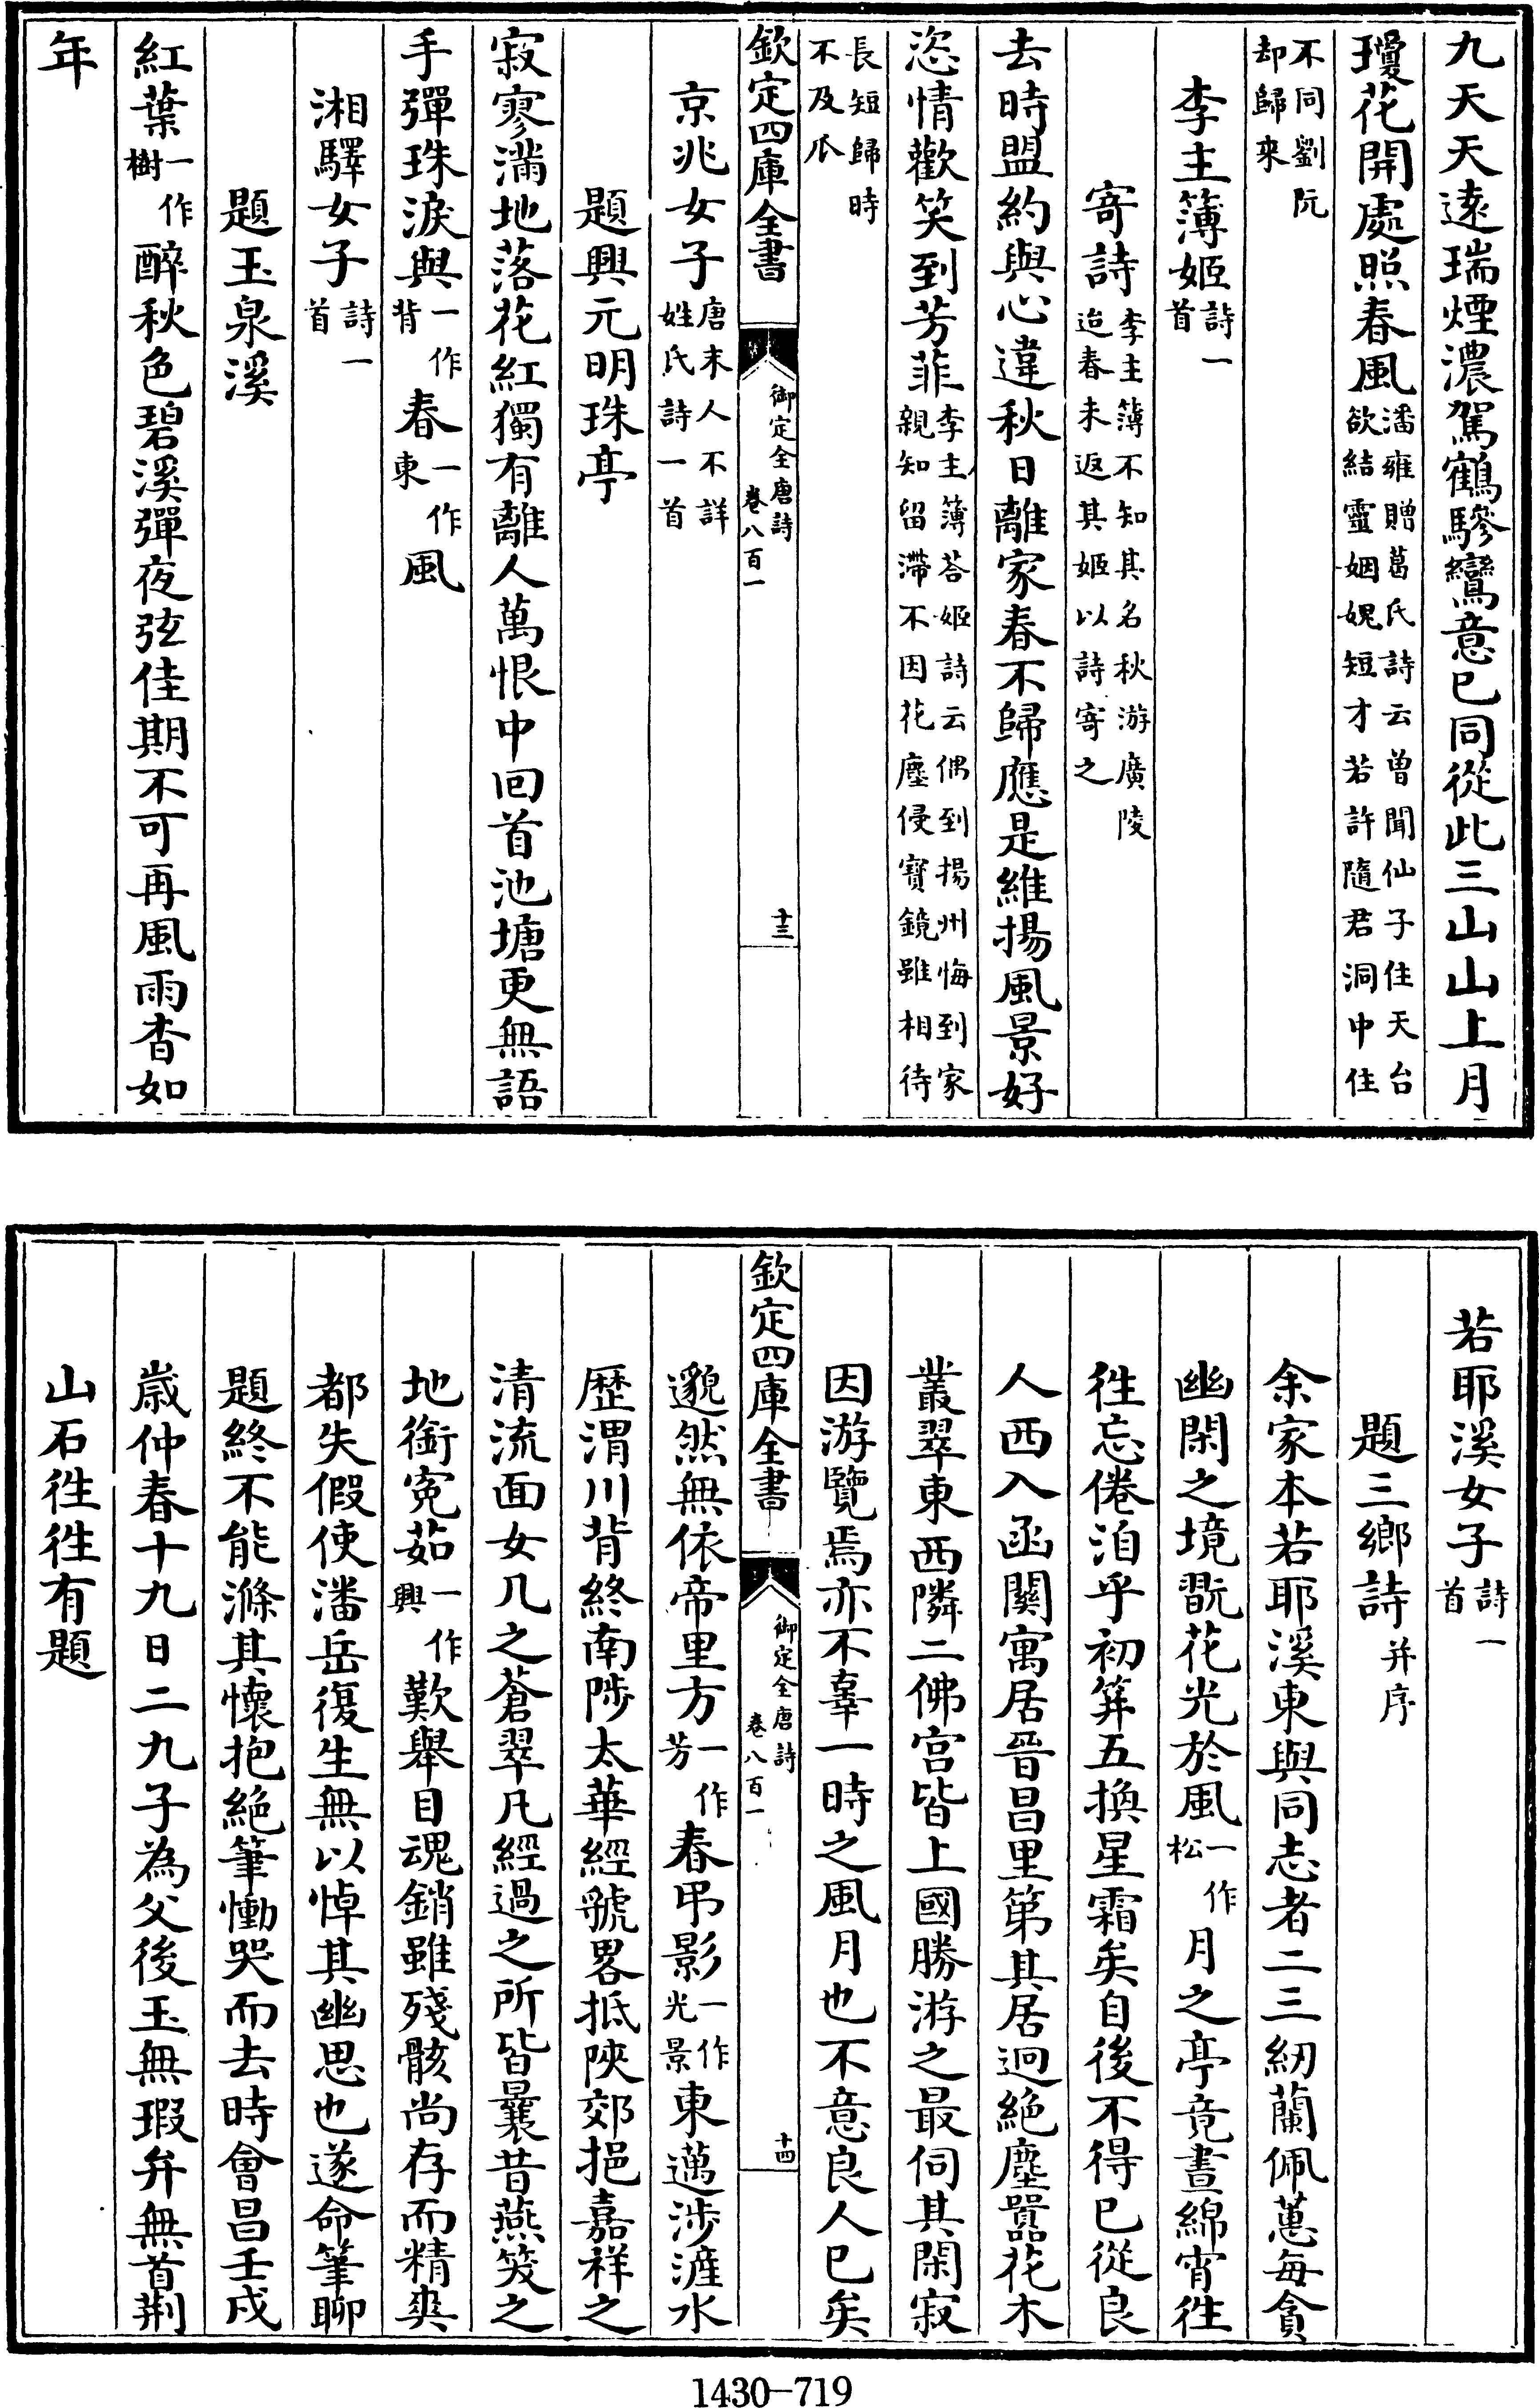 九天天遠瑞煙濃駕鶴驂鸞意已同從此三山山上月
瓊花開處照春風潘雍贈葛氏詩云曾聞仙子住天台欲結靈姻媿短才若許隨君洞中住
不同劉阮却歸來
李主簿姬詩一首
寄詩李主簿不知其名秋游廣陵迨春未返其姬以詩寄之
去時盟約與心違秋日離家春不歸應是維揚風景好
恣情歡笑到芳菲李主簿荅姬詩云偶到揚州悔到家親知留滯不因花塵侵寳鏡雖相待
長短歸時不及瓜
欽定四庫全書 御定全唐詩 卷八百一 十三
京兆女子唐末人不詳姓氏詩一首
題興元明珠亭
寂寥滿地落花紅獨有離人萬恨中回首池塘更無語
手彈珠淚與一作背春一作東風
湘驛女子詩一首
題玉泉溪
紅葉一作樹醉秋色碧溪彈夜弦佳期不可再風雨杳如
年
若耶溪女子詩一首
題三鄉詩并序
余家本若耶溪東與同志者二三紉蘭佩蕙每貪
幽閑之境翫花光於風一作松月之亭竟晝綿宵徃
徃忘倦洎乎初筓五換星霜矣自後不得已從良
人西入函關寓居晉昌里第其居迥絶塵囂花木
叢翠東西隣二佛宫皆上國勝游之最伺其閑寂
因游覽焉亦不辜一時之風月也不意良人已矣
欽定四庫全書 御定全唐詩 卷八百一 十四
邈然無依帝里方一作芳春弔影一作光景東邁涉滻水
歴渭川背終南陟太華經虢畧抵陜郊挹嘉祥之
清流面女几之蒼翠凡經過之所皆曩昔燕笑之
地銜寃茹一作興歎舉目魂銷雖殘骸尚存而精爽
都失假使潘岳復生無以悼其幽思也遂命筆聊
題終不能滌其懷抱絶筆慟哭而去時會昌壬戌
歳仲春十九日二九子為父後玉無瑕弁無首荆
山石徃徃有題
1430-719